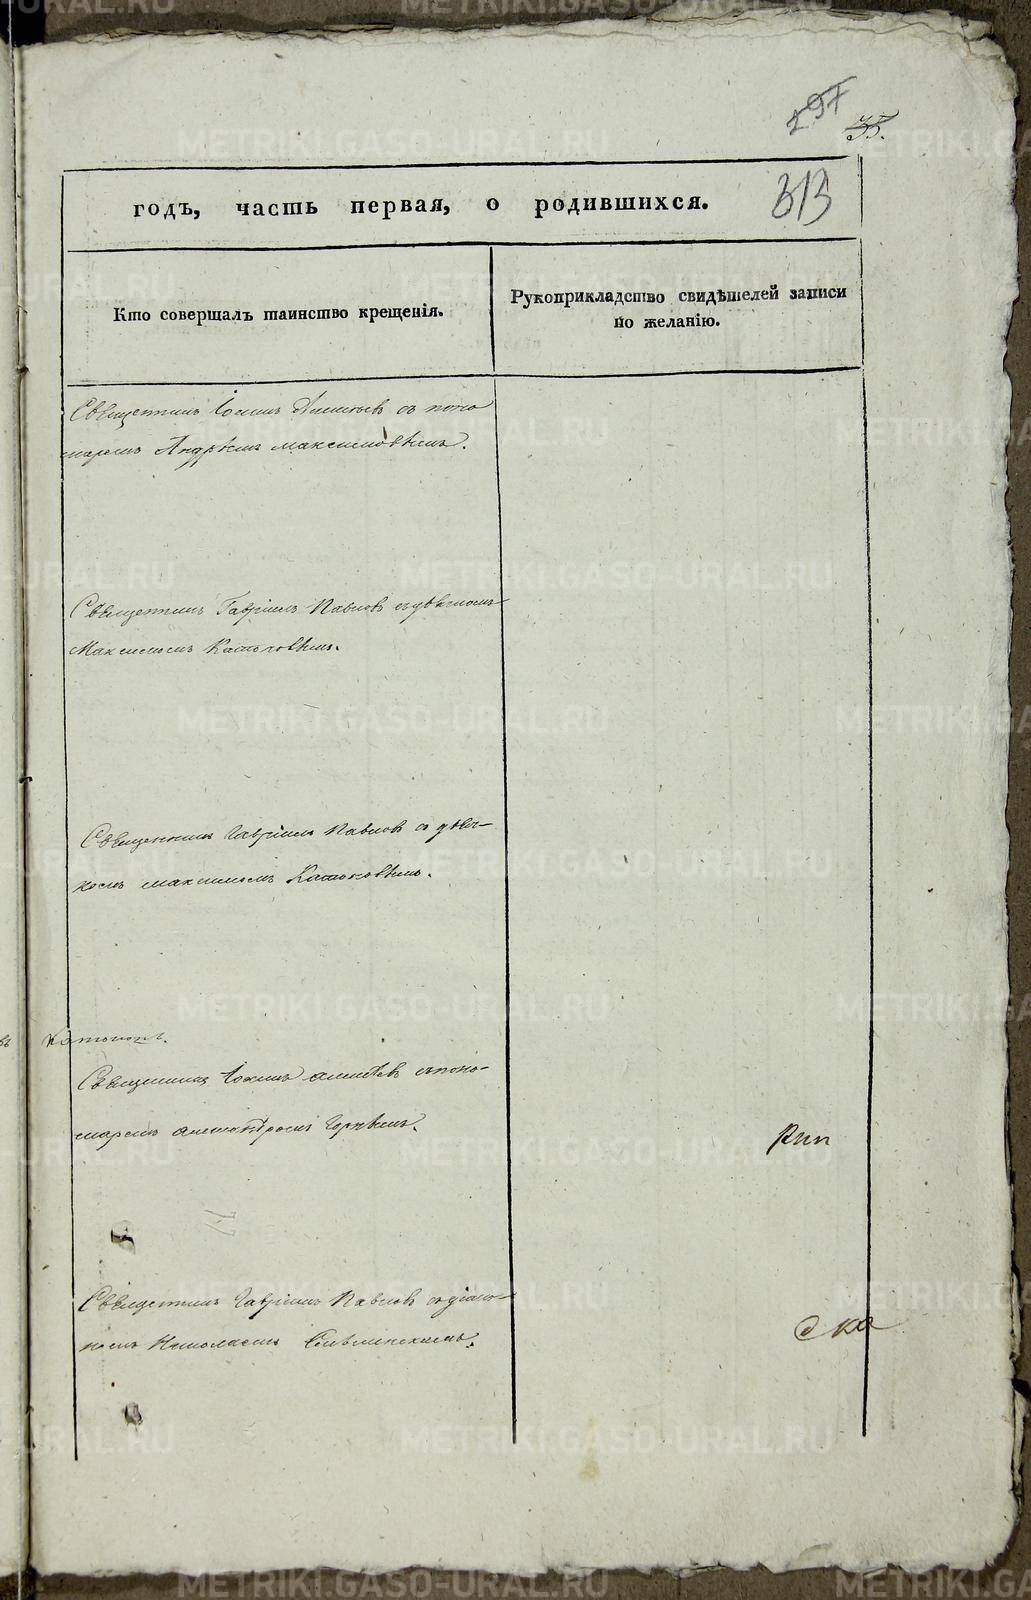 297
33.
313
годъ, часть первая, о родившихся.
Кто совершалъ таинство крещенія.
Рукоприкладство свидѣтелей записи
по желанію.
Священникъ Іоаннъ съ поно
маремъ Андреемъ Максимовымъ.
Священникъ Гавріилъ Павловъ съ дьячкомъ
Максимомъ
Священникъ Гавріилъ Павловъ съ дьяч-
комъ Максимомъ
Священникъ Іоаннъ съ поно-
маремъ
Священникъ Гавріилъ Павловъ съ діако-
номъ Николаемъ
ска
METRIKI.GASO-URAL.RU